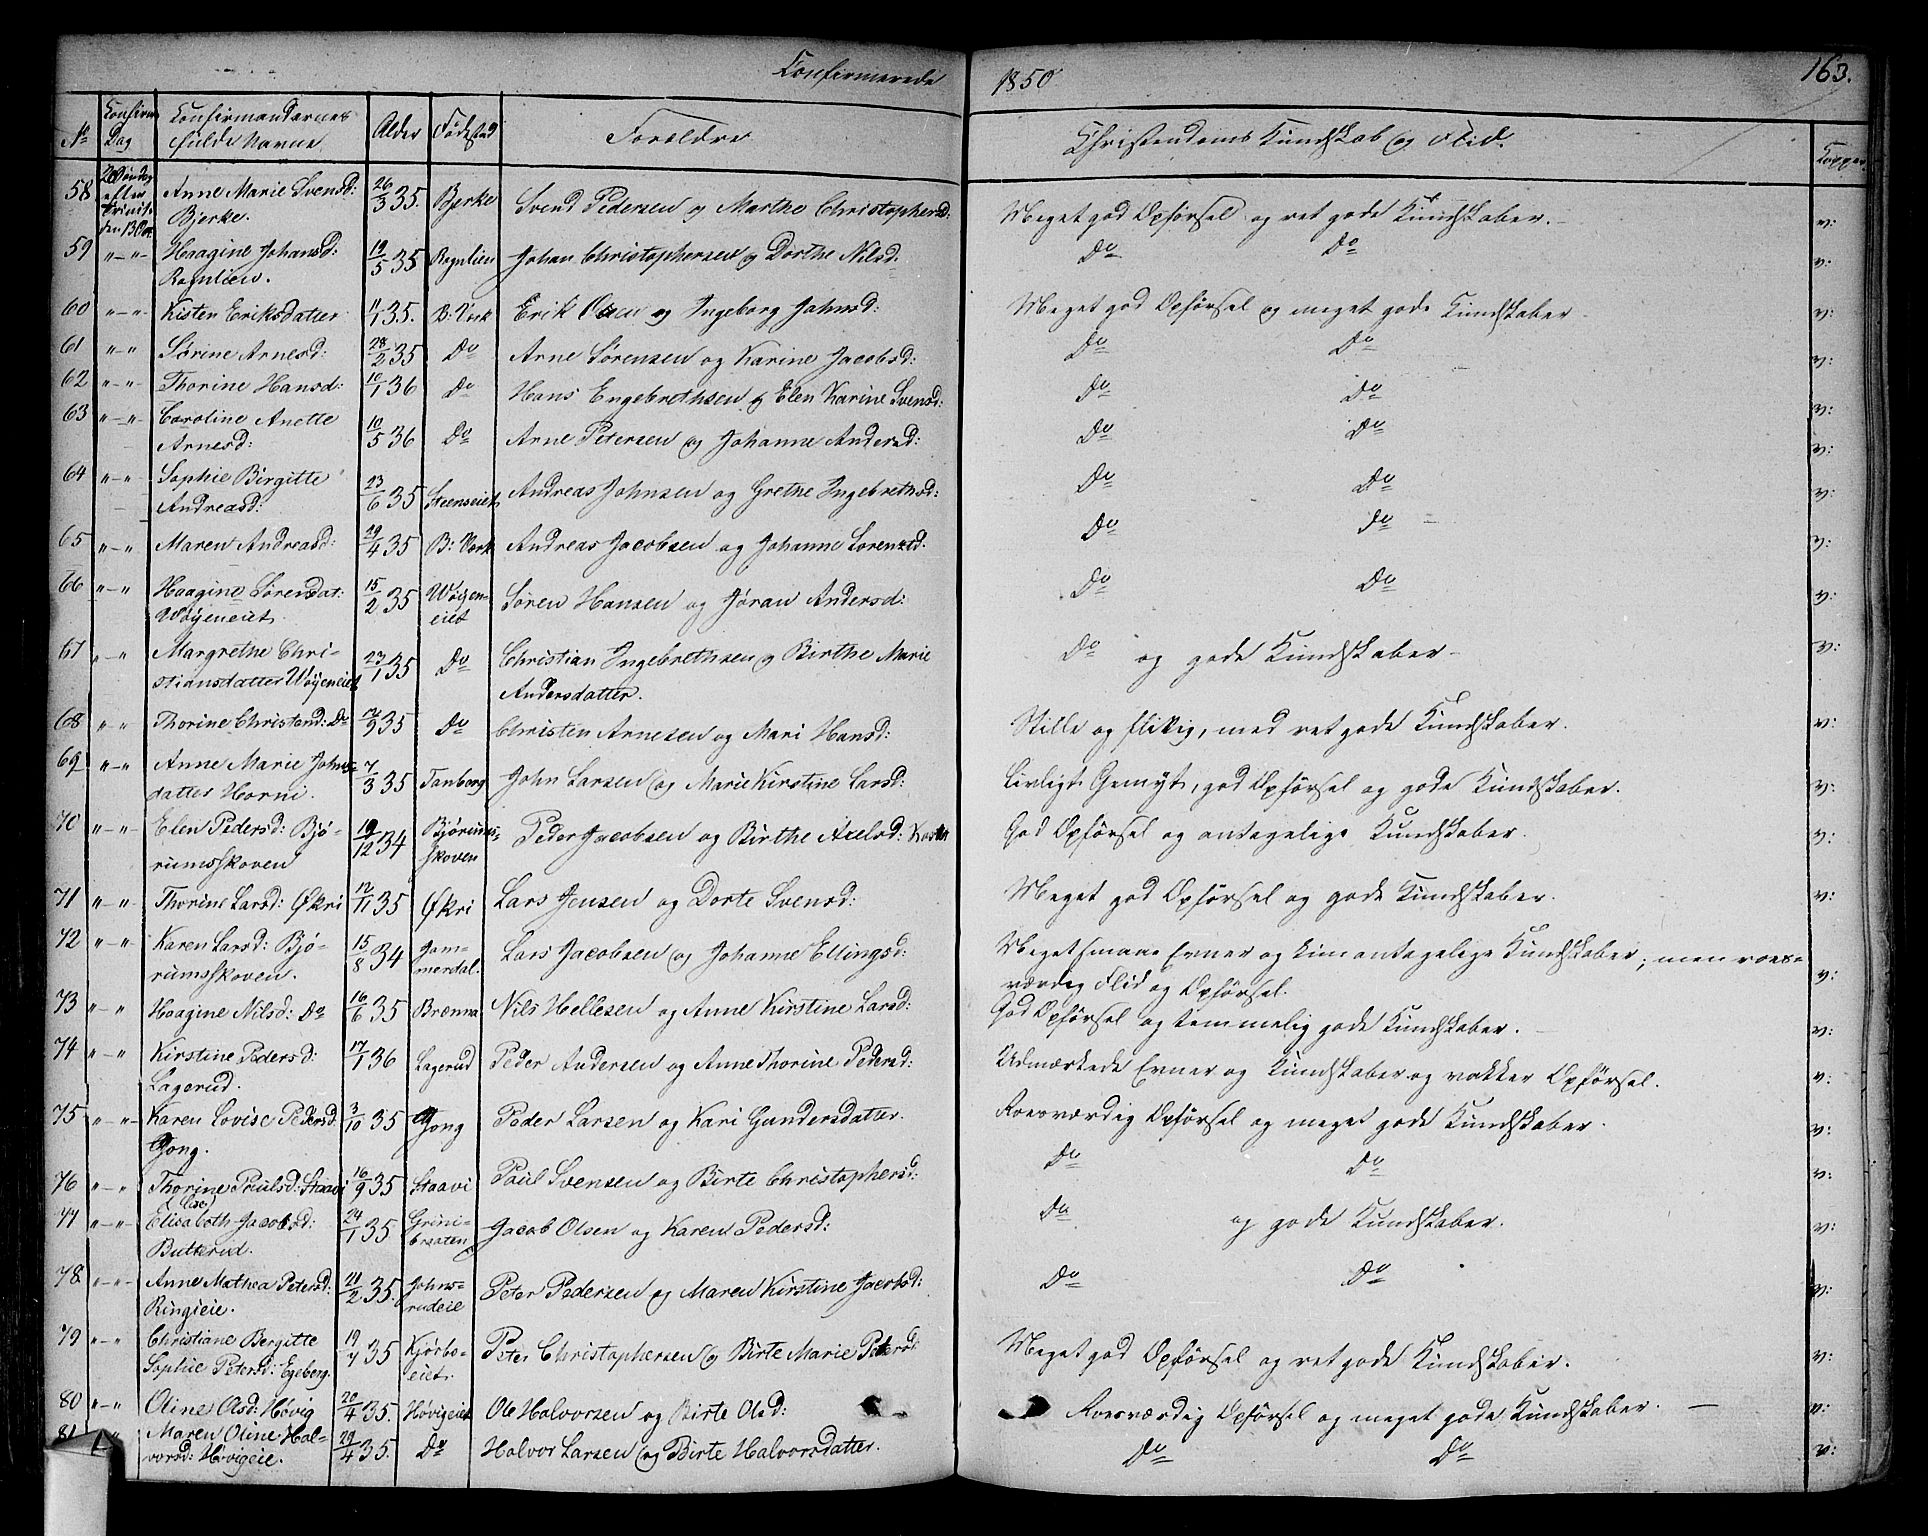 Confirmerede 1850 163.
No Confirm Dag Confirmandernes fulde Navne Alder Fødested Forældre Christendoms Kundskab og Flid. Kopper
58 Anne Marie Svensd: Bjerke. 26/3 35. Bjerke Svend Pedersen og Marthe Christophersd: Meget god Opførsel og ret gode Kundskaber. v:
59 "-" Haagine Johansd: Rognlien. 19/5 35 Rognlien Johan Christophersen og Dorthe Nilsd. Do Do v:
60 "-" Kisten Eriksdatter 11/1 35. B: Værk Erik Olsen og Ingeborg Johnsd: Meget god Opførsel og meget gode Kundskaber v:
61 "-" Sørine Arnesd: 28/2 35 Do Arne Sørensen og Karine Jacobsd: Do Do v:
62 "-" Thorine Hansd: 10/1 36 Do Hans Engebrethsen og Elen Karine Svensd: Do Do v:
63 "-" Caroline Anette Arnesd: 10/5 36 Do Arne Petersen og Johanne Andersd: Do Do v:
64 "-" Sophie Birgitte Andreasd: 23/6 35 Steenseiet Andreas Johnsen og Grethe Ingebrethsd: Do Do v:
65 "-" Maren Andreasd: 29/4 35 B: Værk Andreas Jacobsen og Johanne Lorentsd. Do Do v:
66 "-" Haagine Sørensdat: Wøyeneiet 15/2 35 Wøyeneiet Søren Hansen og Jøran Andersd: Do Do v:
67 "-" Margrethe Christiansdatter Wøyeneiet 23/1 35 Do Christian Ingebrethsen og Birthe Marie Andersdatter. Do og gode Kundskaber v:
68 " " Thorine Christend: Do 35 Do Christen Arnesen og Mari Hansd: Stille og flittig, med ret gode Kundskaber. v:
69 "-" Anne Marie Johnsdatter Horni. 7/3 35 Tanberg John Larsen og Marie Kirstine Larsd: Livligt Gemyt, god Opførsel og gode Kundskaber. v:
70 "-" Elen Pedersd: Bjørumsskoven 19/12 34 Bjørumsskoven Peder Jacobsen og Birthe Axelsd: God Opførsel og antagelige Kundskaber. v:
71 "-" Thorine Larsd: Økri 12/11 35 Økri Lars Jensen og Dorte Svensd: Meget god Opførsel og gode Kundskaber. v:
72 "-" Karen Larsd: Bjørumsskoven. 15/8 34 Jammerdal. Lars Jacobsen og Johanne Ellingsd: Meget smaae Evner og kun antagelige Kundskaber; men roesværdig Flid og Opførsel. v:
73 "-" Haagine Nilsd: Do 16/6 35 Brænna Nils Hellesen og Anne Kirstine Larsd: God Opførsel og temmelig gode Kundskaber. v:
74 "-" Kirstine Pedersd: Lagerud. 17/1 36 Lagerud Peder Andersen og Anne Thorine Pedersd: Udmærkede Evner og Kundskaber og vakker Opførsel. v:
75 "-" Karen Lovise Pedersd: Gjong. 3/10 35 Gjong Peder Larsen og Kari Gundersdatter. Roesværdig Opførsel og meget gode Kundskaber. v:
76 "-" Thorine Paulsd: Staavi 16/9 35 Staavi Paul Svensen og Birte Christophersd: Do Do v:
77 "-" (Lise) Elisabeth Jacobsd: Butterud. 24/1 35 Grinibraaten Jacob Olsen og Karen Pedersd: Do og gode Kundskaber. v:
78 "-" Anne Mathea Petersd: Ringieie. 21/2 35. Johnsrudeie Peter Pedersen og Maren Kirstine Jacobsd: Do Do v:
79 "-" Christiane Bergitte Sophie Petersd: Egeberg. 19/7 35 Kjørboeiet. Peter Christophersen og Birte Marie Petersd: Meget god Opførsel og ret gode Kundskaber. v:
80 "-" Oline Olsd: Høvig 20/4 35. Høvigeiet Ole Halvorsen og Birte Olsd: Roesværdig Opførsel og meget gode Kundskaber. v:
81 Maren Oline Halvorsd: Høvigeie. 29/4 35. Do Halvor Larsen og Birte Halvorsdatter. Do Do v: